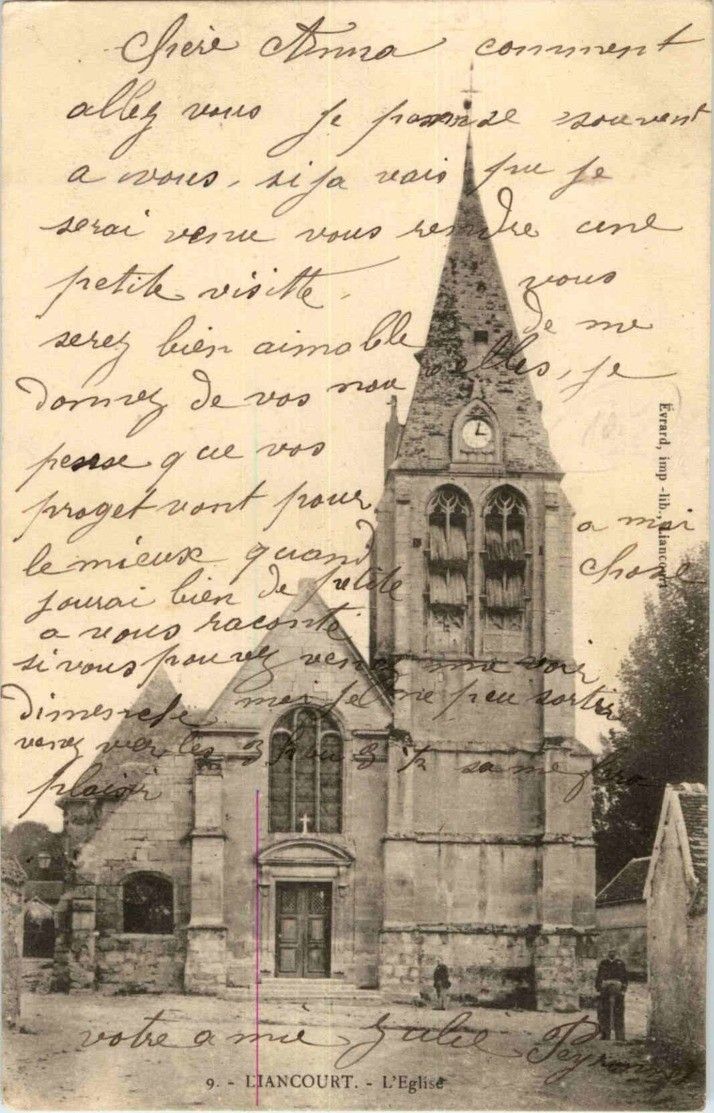 Chère Anna comment
allez vous je panse souvent
a vous. si ja vais pu je
serai venu vous rendre une
petite visitte. vous
serez bien aimablle de me
donnez de vos nouvelles, je
pense que vos
proget vont pour
le mieux quand a moi
jourai bien de petite chose
a vous raconté
si vous pouvez venez me voir
dimenche moi je ne peu sortir
venez vier les 3 h ou 3 ½ sa me fera
plaisir
votre amie Julie
9. - LIANCOURT. - L'Eglise
Évrard, imp.-lib., Liancourt